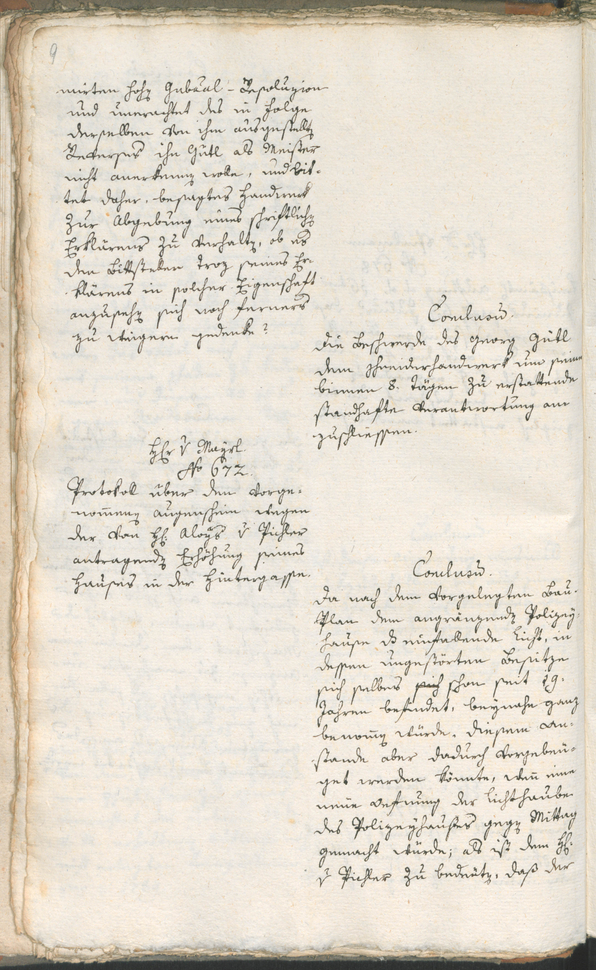 9
mirten hohen Gubäal-Resoluzion
und unerachtet des in Folge
derselben von ihm ausgestellten
Reverses ihn Gütl als Meister
nicht anerkennen wolle, und bit-
tet daher, besagtes Handwerk
zur Abgebung eines schriftlichen
Erklärens zu verhalten, ob es
den Bittsteller troz seines Er-
klärens in solcher Eigenschaft
anzusehen sich noch ferners
zu weigern gedenke?
Conclusum.
Die Beschwerde des Georg Gütl
dem Schneiderhandwerk um seine
binnen 8. Tägen zu erstattende
standhafte Verantwortung an-
zuschliessen.
Hr v Mayrl.
No 672.
Protokoll über den vorge-
nommenen Augenschein wegen
der von H. Aloys v Pichler
antragenden Erhöhung seines
Hauses in der Hintergasse.
Conclusum.
Da nach dem vorgelegten Bau-
Plan dem angränzenden Polizey-
hause das einfallende Licht, in
dessen ungestörten Besitze
sich selbes sich schon seit 19.
Jahren befindet, beynahe ganz
benommen würde, diesem An-
stande aber dadurch vorgebeü-
get werden könnte, wenn eine
neüe Oefnung der Lichthaube
des Polizeyhauses gegen Mittag
gemacht würde; als ist dem H.
v Pichler zu bedeüten, daß der